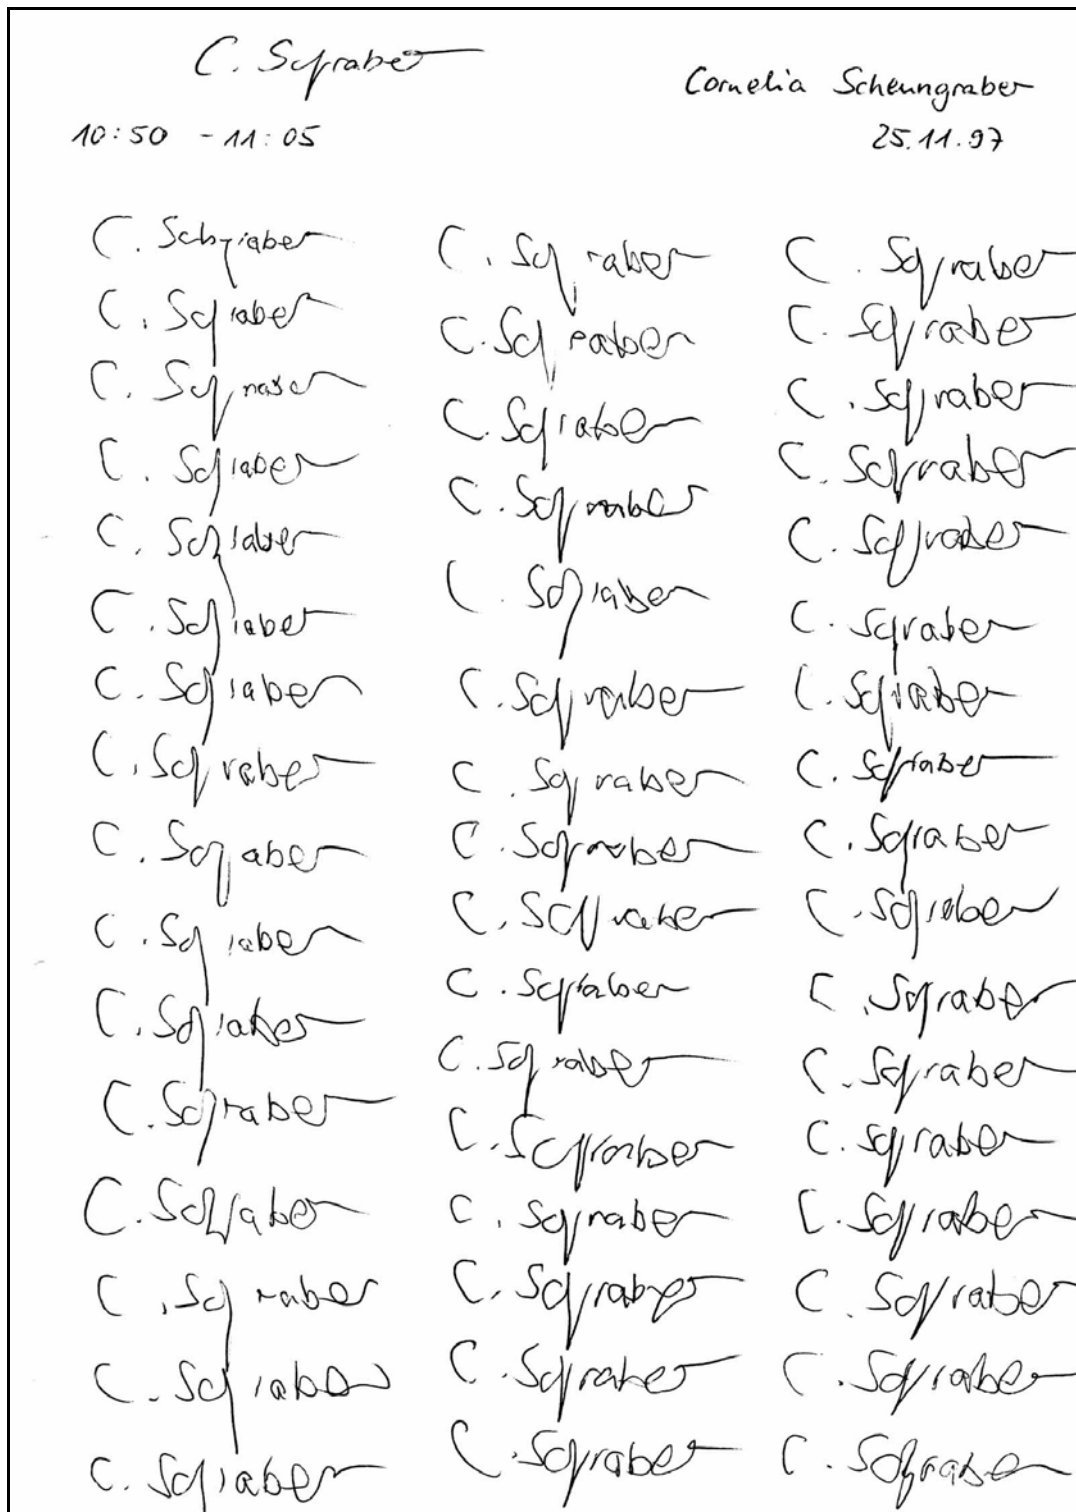 C. Scgraber
Cornelia Scheungraber
10:50 - 11:05
25.11.97
C. Schgraber
C. Scgraber
C. Scgraber
C. Scgraber
C. Scgraber
C. Scgraber
C. Scgraber
C. Scgraber
C. Scgraber
C. Scgraber
C. Scgraber
C. Scgraber
C. Scgraber
C. Scgraber
C. Scgraber
C. Scgraber
C. Scgraber
C. Scgraber
C. Scgraber
C. Scgraber
C. Scgraber
C. Scgraber
C. Scgraber
C. Scgraber
C. Scgraber
C. Scgraber
C. Scgraber
C. Scgraber
C. Scgraber
C. Scgraber
C. Scgraber
C. Scgraber
C. Scgraber
C. Scgraber
C. Scgraber
C. Scgraber
C. Scgraber
C. Scgraber
C. Scgraber
C. Scgraber
C. Scgraber
C. Scgraber
C. Scgraber
C. Scgraber
C. Scgraber
C. Scgraber
C. Scgraber
C. Scgraber
C. Scgraber